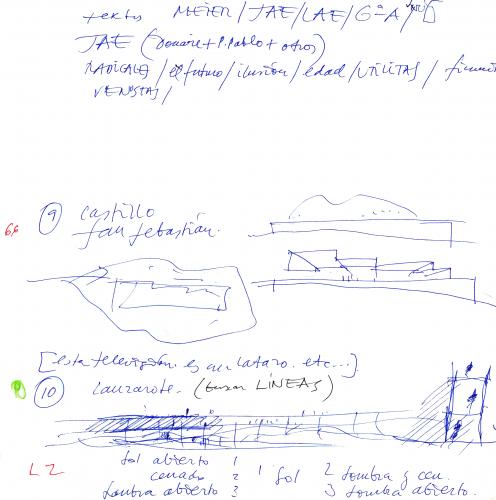 textos MEIER / JAE / LAE / GªA /
JAE (Domine + P. Pablo + otros)
RADICALES / el futuro / ilusión / edad / UTILITAS /
66 9 castillo
San Sebastián.
[esta televisión es un latazo. etc...]
10 Lanzarote. (buscar LÍNEAS)
LZ
sol abierto 1
cerrado 2 1 sol 2 sombra y cerr.
sombra abierto 3 3 sombra abierto.